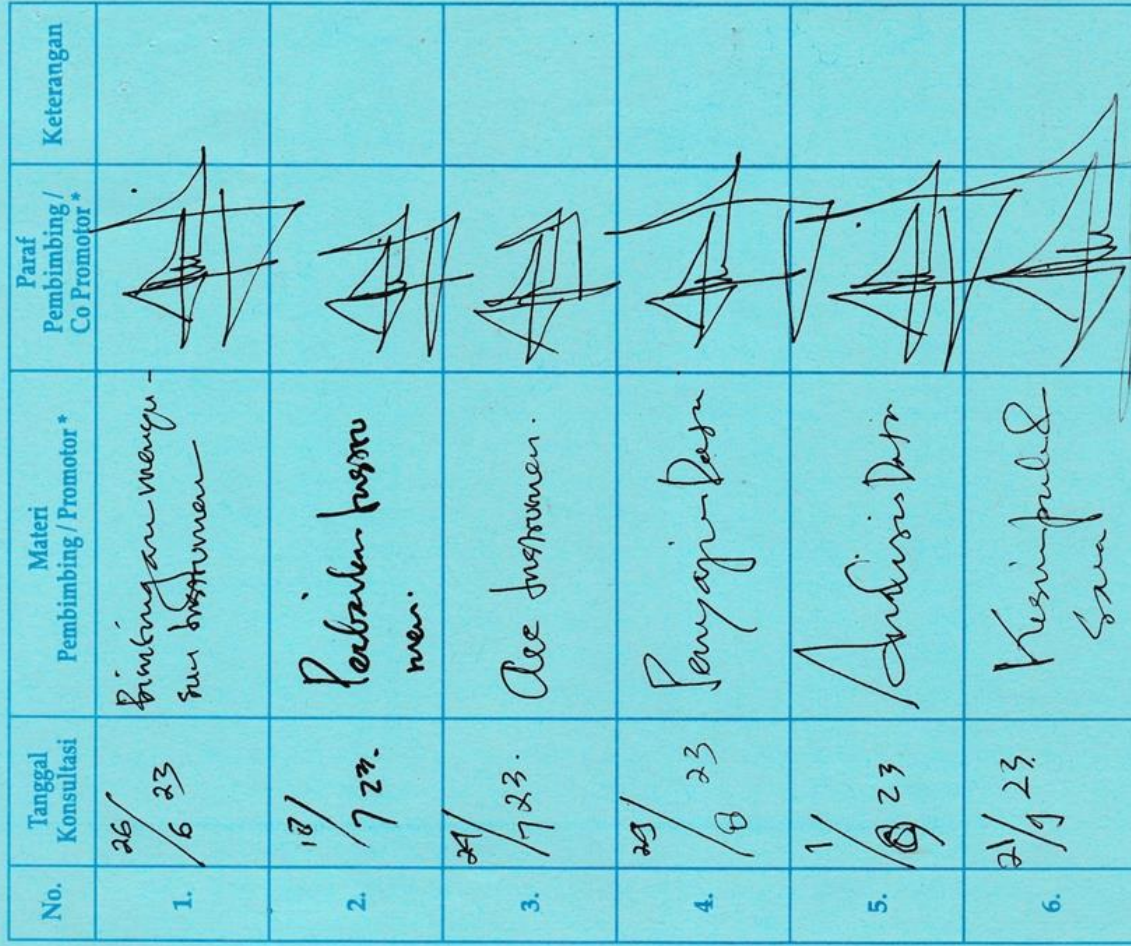 No.
Tanggal
Konsultasi
Materi
Pembimbing / Promotor *
Paraf
Pembimbing /
Co Promotor *
Keterangan
1.
26/6 23
Bimbingan menyu-
sun instrumen
2.
18/7 23.
Perbaikan Instru
men.
3.
24/7 23.
acc Instrumen.
4.
29/8 23
Penyajian Data
5.
1/9 23
Analisis Data
6.
21/9 23
Kesimpulan &
Saran